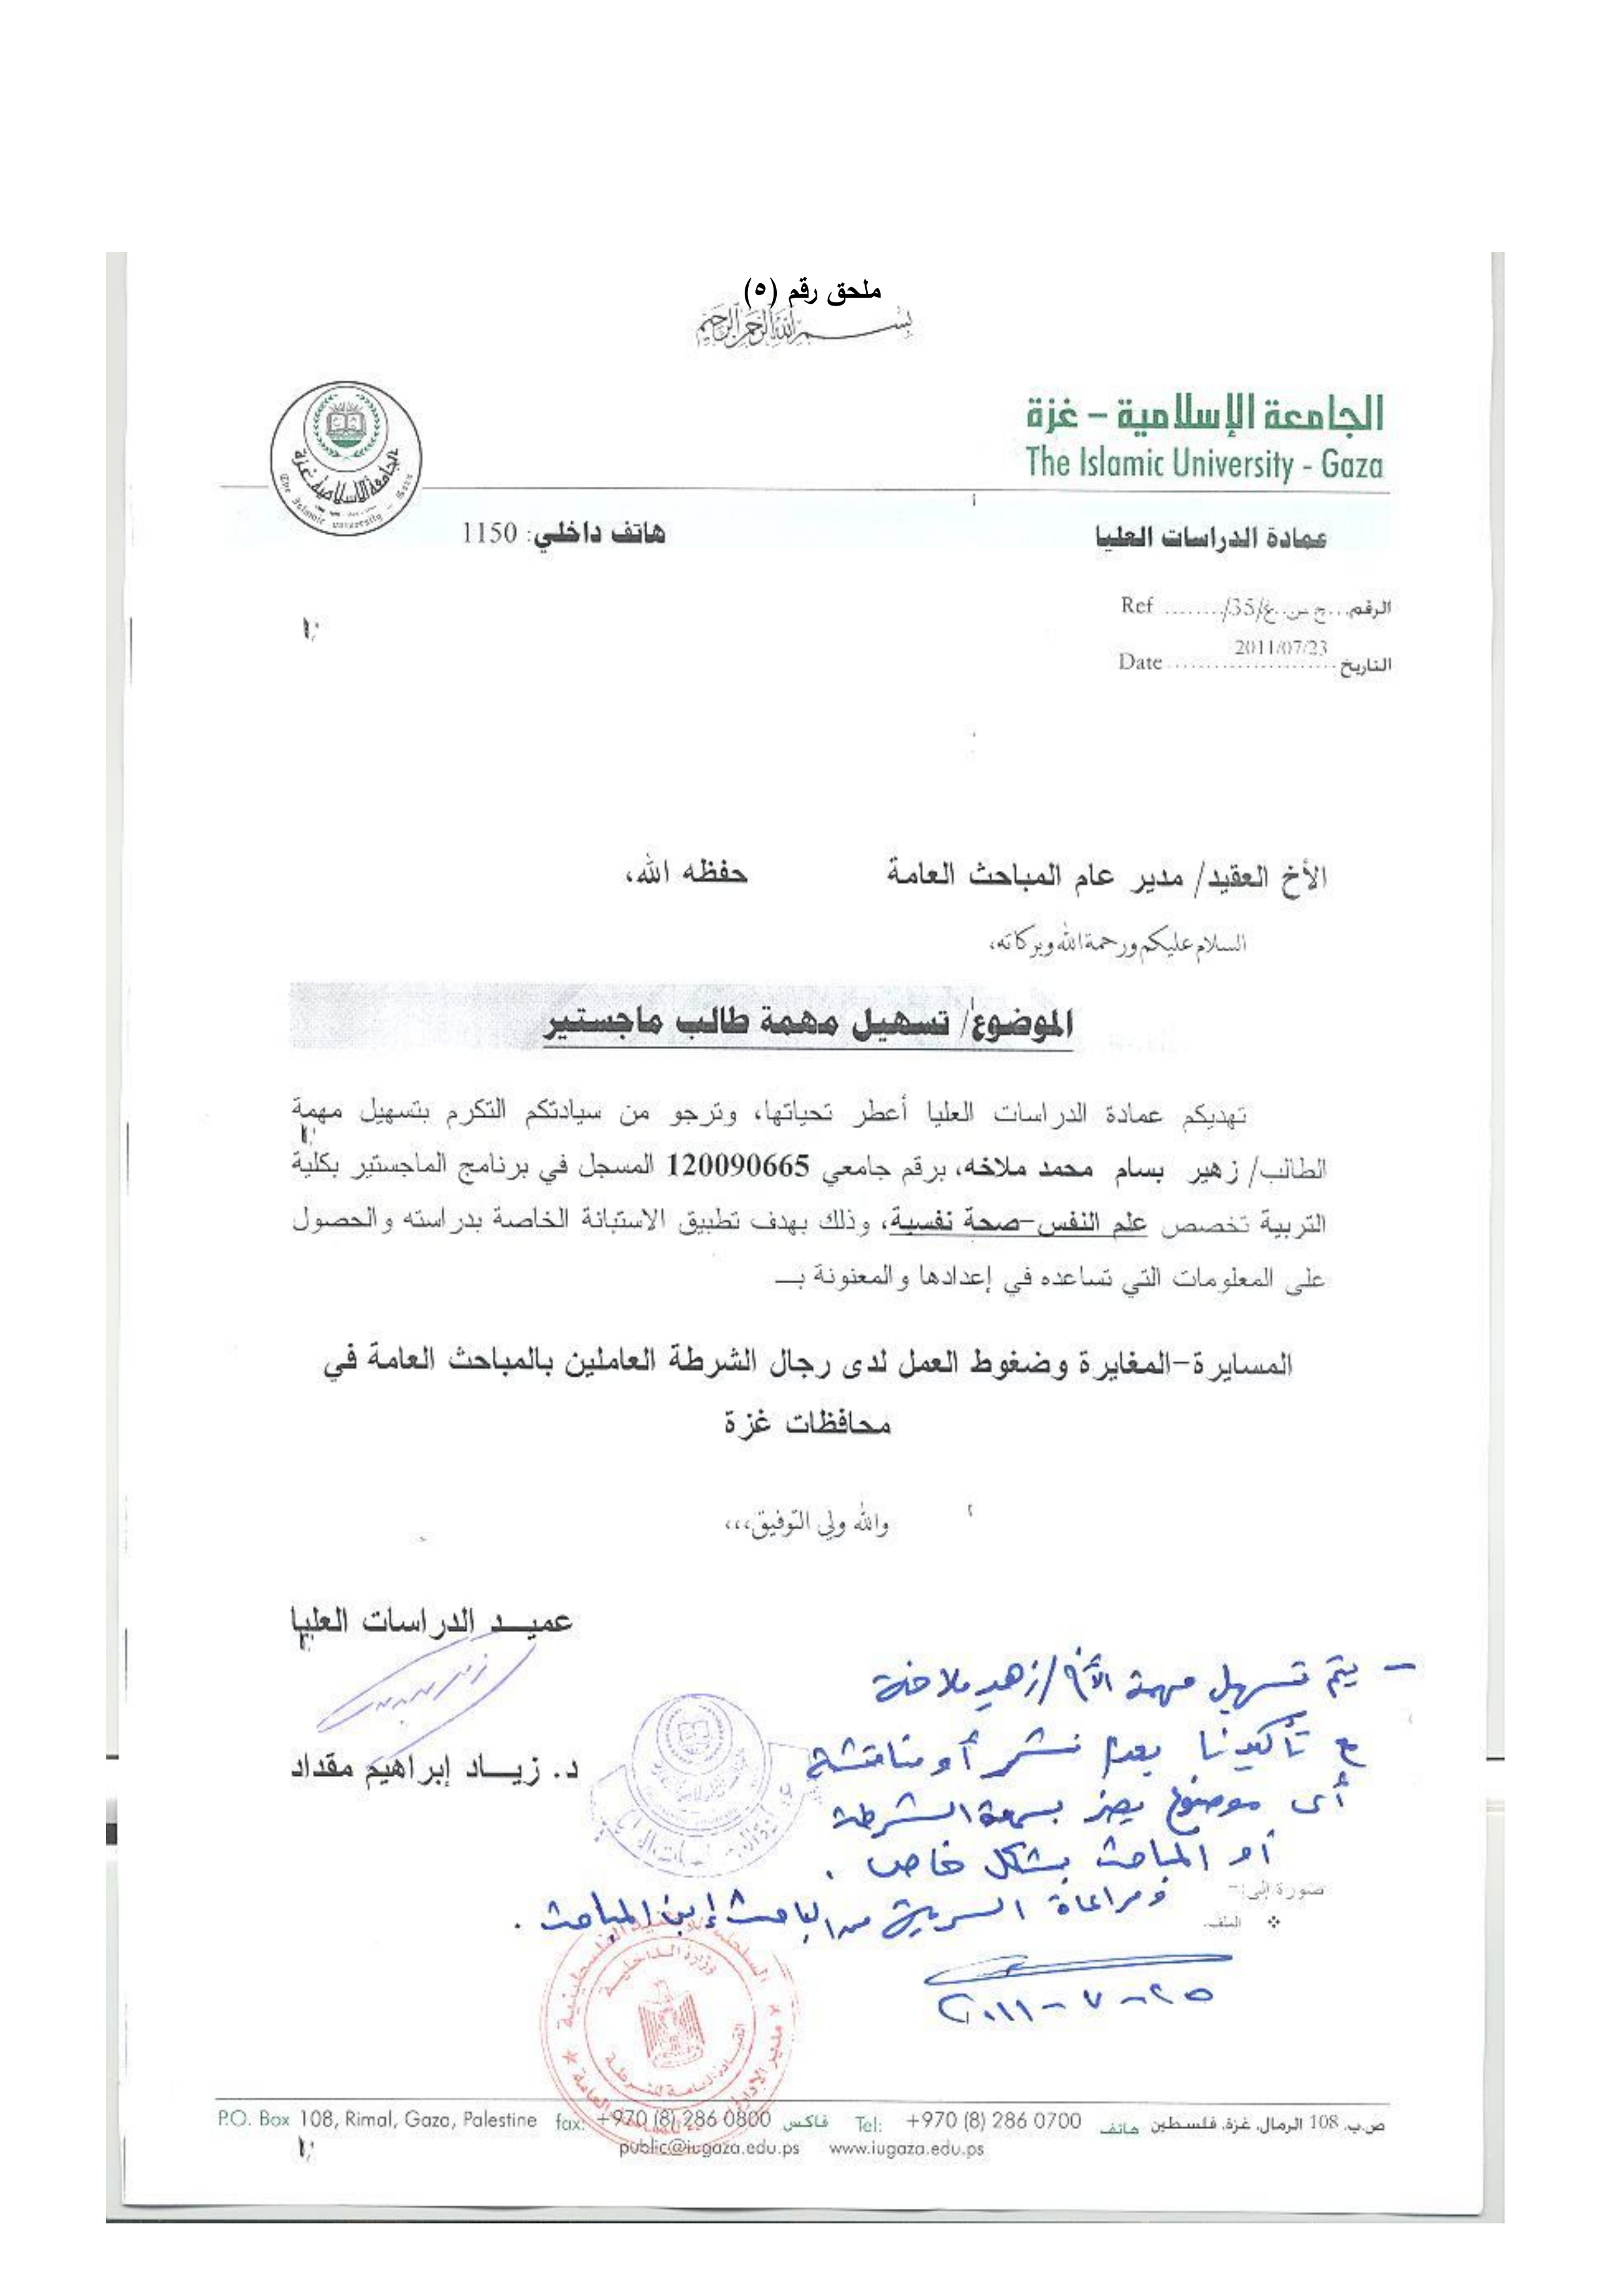 ملحق رقم (٥)
بسم الله الرحمن الرحيم
الجامعة الإسلامية – غزة
The Islamic University - Gaza
الجامعة الإسلامية غزة
The Islamic University - Gaza
عمادة الدراسات العليا
هاتف داخلي: 1150
الرقم...ج س غ/35/........ Ref
2011/07/23
التاريخ...................... Date
الأخ العقيد/ مدير عام المباحث العامة حفظه الله،
السلام عليكم ورحمة الله وبركاته،
الموضوع/ تسهيل مهمة طالب ماجستير
تهديكم عمادة الدراسات العليا أعطر تحياتها، وترجو من سيادتكم التكرم بتسهيل مهمة
الطالب/ زهير بسام محمد ملاخه، برقم جامعي 120090665 المسجل في برنامج الماجستير بكلية
التربية تخصص علم النفس-صحة نفسية، وذلك بهدف تطبيق الاستبانة الخاصة بدراسته والحصول
على المعلومات التي تساعده في إعدادها والمعنونة بـــ
المسايرة-المغايرة وضغوط العمل لدى رجال الشرطة العاملين بالمباحث العامة في
محافظات غزة
والله ولي التوفيق،،،
عميــد الدراسات العليا
د. زيــاد إبراهيم مقداد
- يتم تسهيل مهمة الأخ/ زهير ملاخة
مع تأكيدنا بعدم نشر أو مناقشة
أى موضوع يضر بسمعة الشرطة
أو المباحث بشكل خاص .
ومراعاة السرية من الباحث إبن المباحث .
٢٠١١-٧-٢٥
صورة إلى:-
❖ الملف.
وزارة الداخلية
القيادة العامة للشرطة
P.O. Box 108, Rimal, Gaza, Palestine fax: +970 (8) 286 0800 فاكس Tel: +970 (8) 286 0700 هاتف ص.ب. 108 الرمال، غزة، فلسطين
public@iugaza.edu.ps www.iugaza.edu.ps